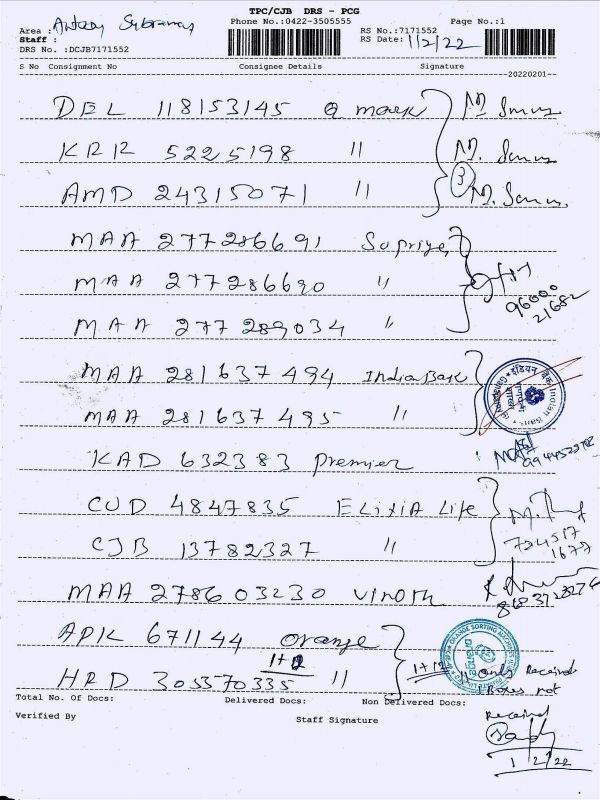 TPC/CJB DRS - PCG
Phone No.:0422-3505555 Page No.:1
Area :
Staff :
DRS No. :DCJB7171552
RS No.:7171552
RS Date: 1/2/22
S No Consignment No Consignee Details Signature
20220201
DEL 118153145 Q mark
KRR 5225198 "
AMD 24315071 " 3
MAA 277286691 Supriya
MAA 277286690 "
96000
21682
MAA 277289034 "
MAA 281637494 Indian Bank
इंडियन बैंक Indian Bank
MAA 281637495 "
KAD 632383 Premier
CUD 4847835 ELixiA Life
CJB 13782327 "
MAA 278603230 vinoth
APK 671144 orange
ORANGE SORTING MACHINES
orange
1+12
HRD 305570335 "
1+12
only Received
Boxes not
Received
Total No. Of Docs: Delivered Docs: Non Delivered Docs:
Verified By Staff Signature
1/2/22